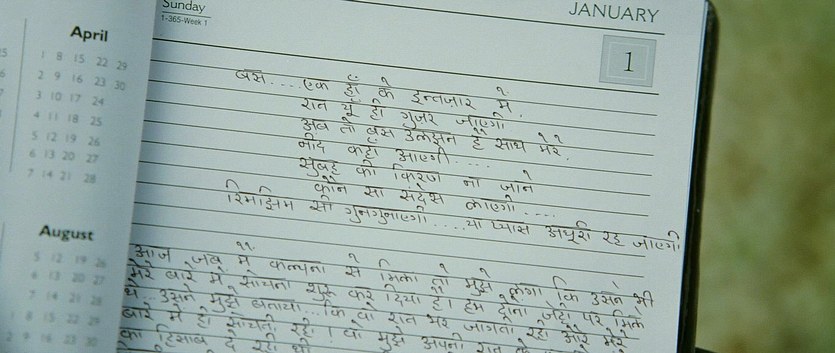 Sunday
1-365-Week 1
JANUARY
1
April
1 8 15 22 29
2 9 16 23 30
3 10 17 24
4 11 18 25
5 12 19 26
6 13 20 27
7 14 21 28
August
5 12 19 26
6 13 20 27
7 14 21 28
1 8 15 22 29
2 9 16 23 30
बस.... एक हाँ के इन्तजार में
रात यूँ ही गुजर जाएगी
अब तो बस उलझन है साथ मेरे.
नींद कहाँ आएगी....
सुबह की किरण ना जाने
कौन सा संदेश लाएगी....
रिमझिम सी गुनगुनाएगी.... या प्यास अधूरी रह जाएगी
आज जब मैं कल्पना से मिला तो मुझे लगा कि उसने भी
मेरे बारे में सोचना शुरू कर दिया है। हम दोनो जेटी पर मिले
थे... उसने मुझे बताया... कि वो रात भर जागती रही और मेरे
बारे में ही सोचती रही। वो मुझे अपनी रात
का हिसाब दे रही थी